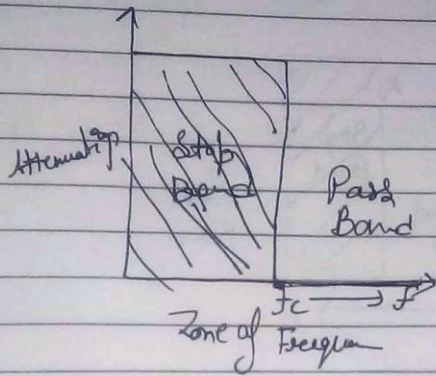 Attenuation
Stop
Band
Pass
Band
fc → f
Zone of Frequen